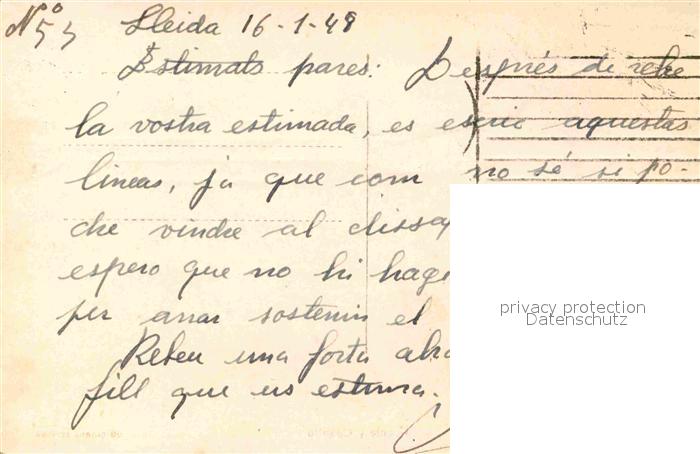 Nº 53 Lleida 16-1-49
Estimats pares: Després de rebre
la vostra estimada, es escric aquestas
lineas, ja que com no sé si po-
dre vindre al dissa
espero que no hi hage
per anar sostenin el
Rebeu una forta abra
fill que us estima.
privacy protection
Datenschutz